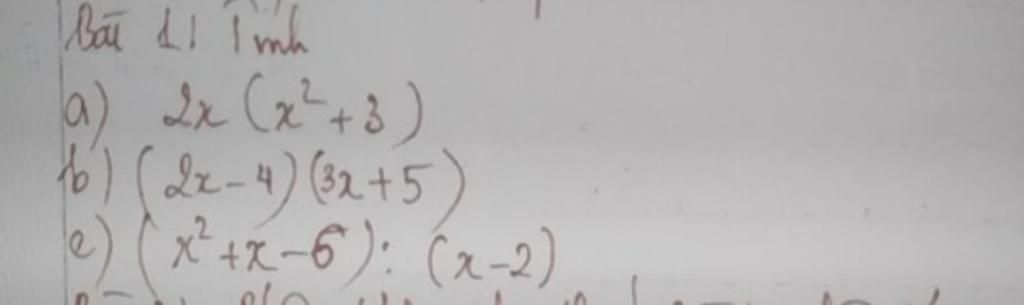 Bài 1: Tính
a) 2x (x² + 3)
b) (2x - 4) (3x + 5)
c) (x² + x - 6) : (x - 2)